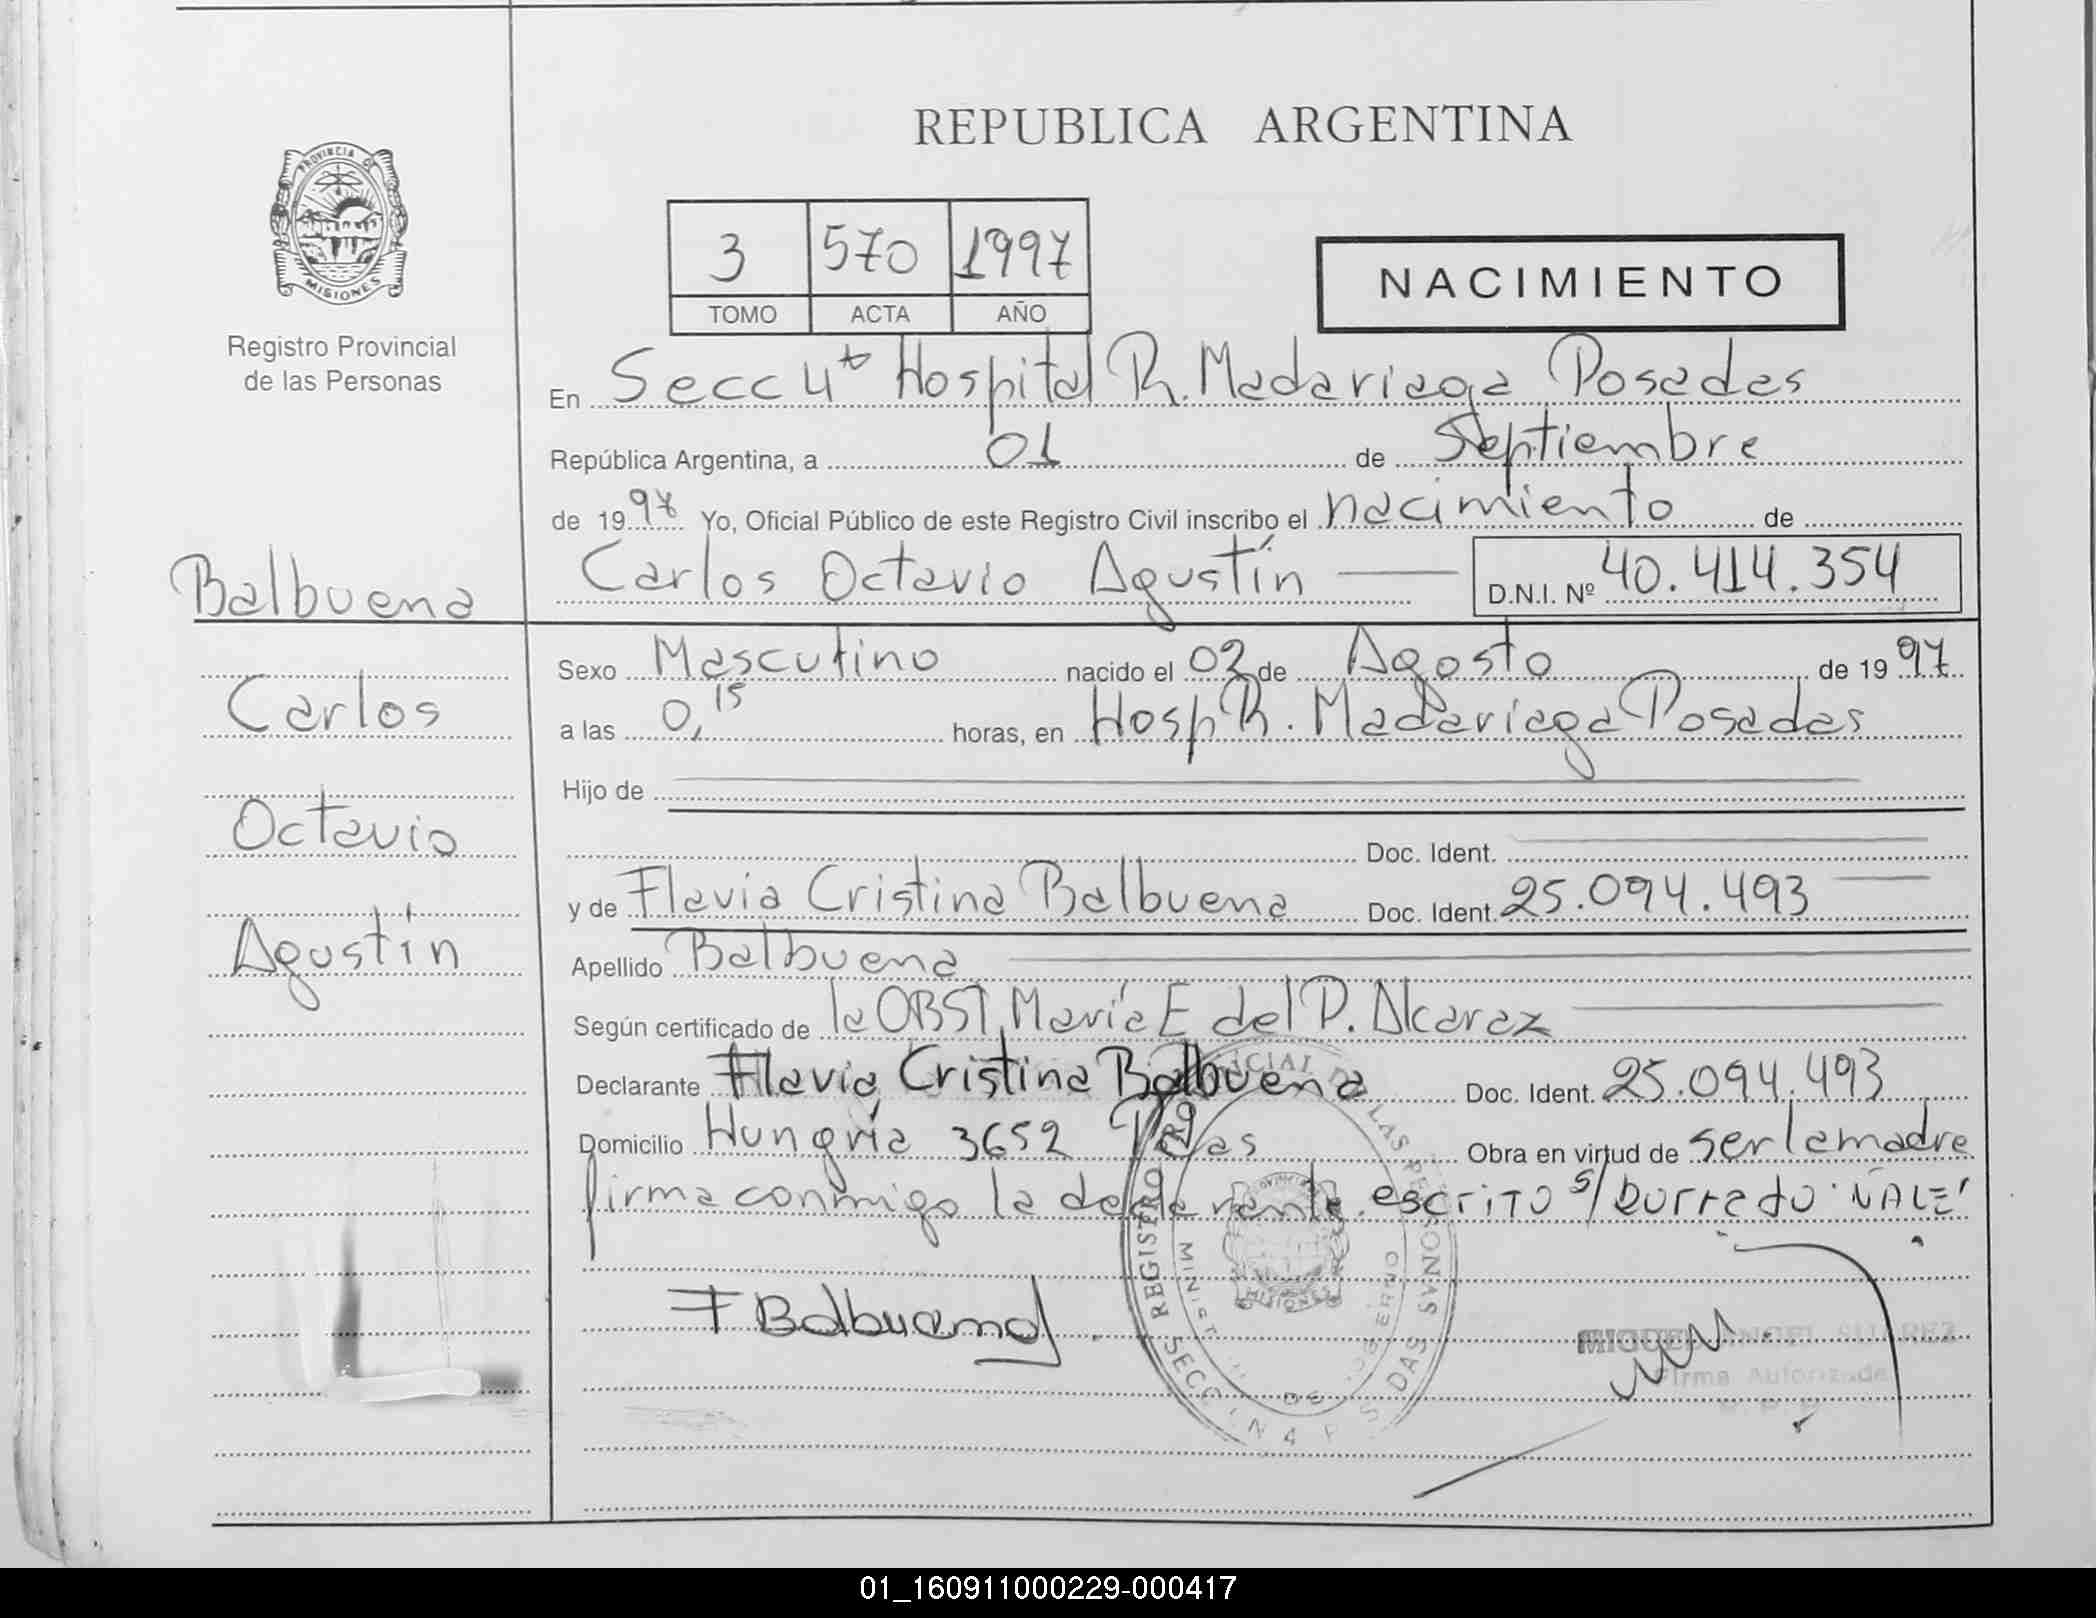 REPUBLICA ARGENTINA
PROVINCIA DE
MISIONES
Registro Provincial
de las Personas
3 570 1997
TOMO ACTA AÑO
NACIMIENTO
En Secc 4ta Hospital R. Madariaga Posadas
República Argentina, a 01 de Septiembre
de 1997 Yo, Oficial Público de este Registro Civil inscribo el nacimiento de
Carlos Octavio Agustín D.N.I. Nº 40.414.354
Balbuena
Carlos
Octavio
Agustín
Sexo Masculino nacido el 02 de Agosto de 1997
a las 0,15 horas, en Hosp R. Madariaga Posadas
Hijo de
Doc. Ident.
y de Flavia Cristina Balbuena Doc. Ident. 25.094.493
Apellido Balbuena
Según certificado de la OBST. María E del P. Alcaraz
Declarante Flavia Cristina Balbuena Doc. Ident. 25.094.493
Domicilio Hungría 3652 Pdas Obra en virtud de ser la madre
firma conmigo la declarante. escrito s/ borrado "VALE"
F Balbuena
MIGUEL ANGEL SUAREZ
Firma Autorizada
01_160911000229-000417